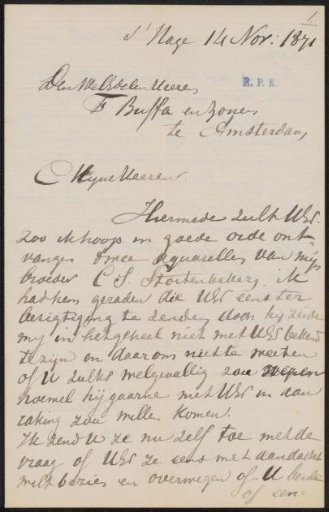 1
s'Hage 14 Nov: 1871
Den WelEdelen Heeren
R.P.K.
F Buffa en Zonen
te Amsterdam
Myne Heeren
Hiermede zult UEd
zoo ik hoop in goede orde ont-
vangen twee aquarellen van mijn
broeder C. S. Stortenbeker. ik
had hem geraden die UEd eens ter
bezigtiging te zenden, doch hij zeide
mij in het geheel niet met UEd bekend
te zijn en daarom niet te weeten
of U zulks welgevallig zou wezen
hoewel hij gaarne met UEd in aan
raking zou willen komen.
Ik zend U ze nu zelf toe met de
vraag of UEd ze eens met aandacht
wilt bezien en overwegen of U beide
of een